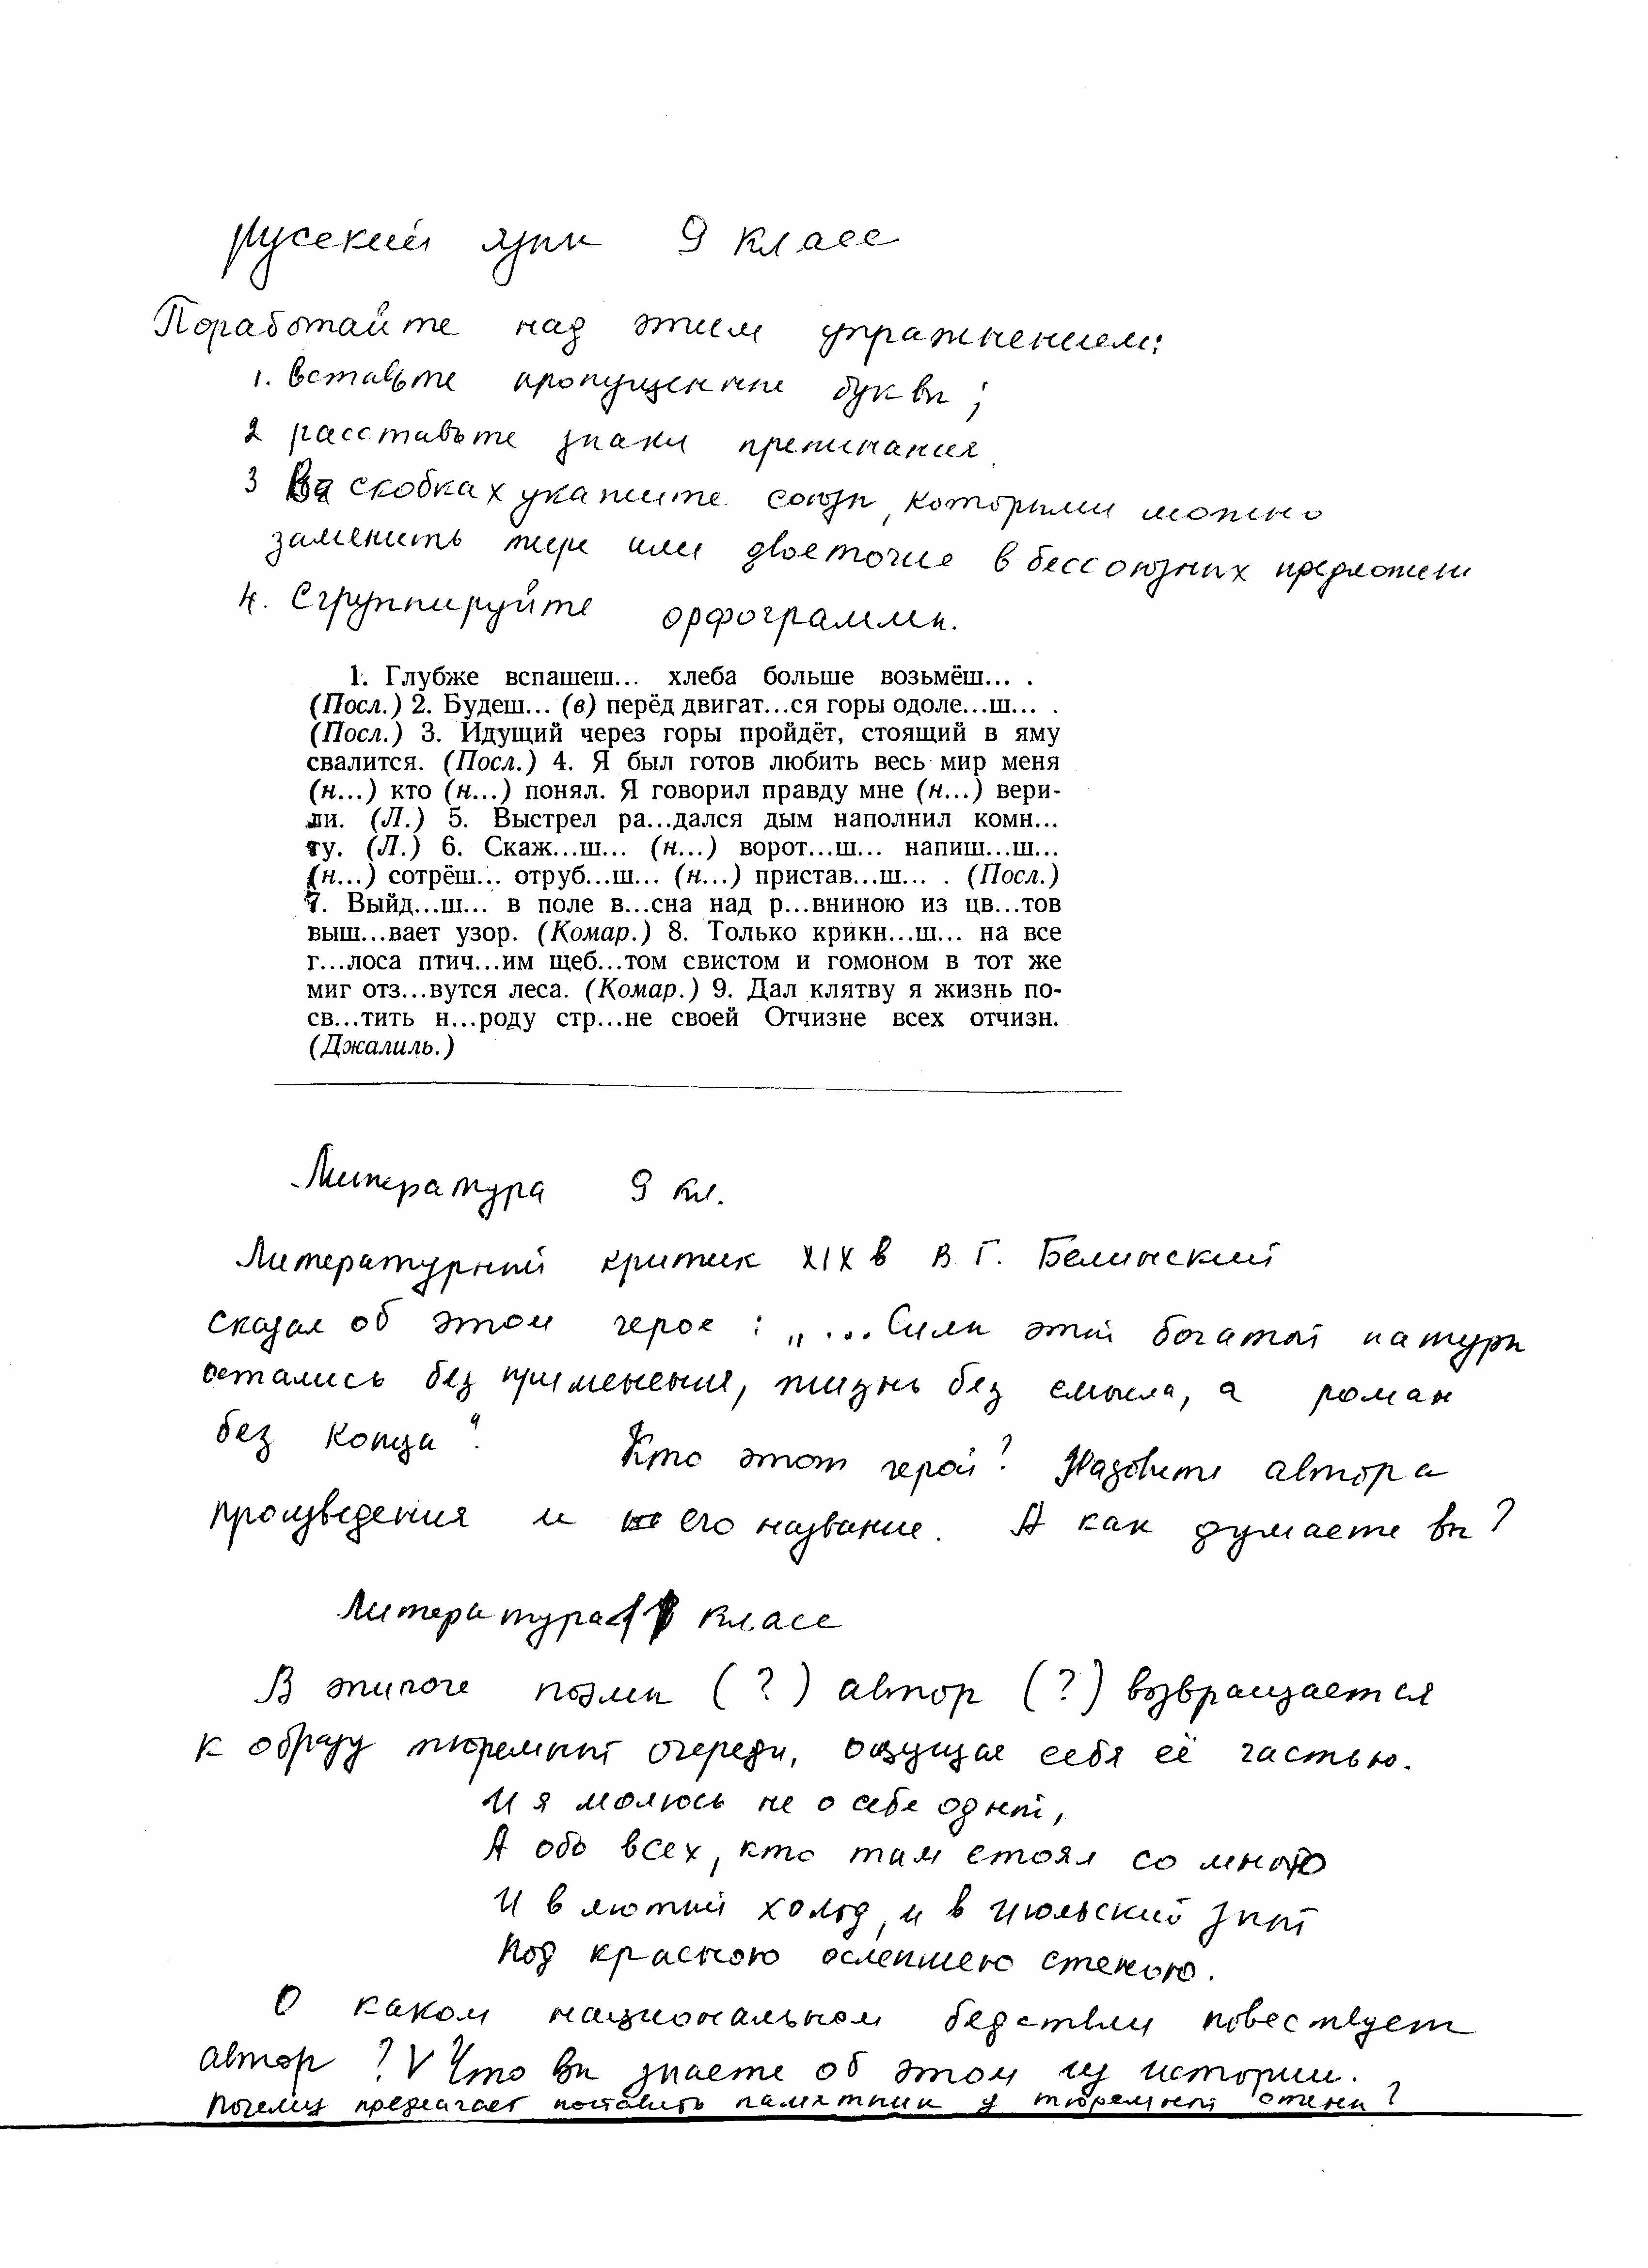 Русский язык 9 класс
Поработайте над этим упражнением:
1. Вставьте пропущенные буквы;
2 расставьте знаки препинания
3 В скобках укажите союзы, которыми можно
заменить тире или двоеточие в бессоюзных предложени
4. Сгруппируйте орфограммы.
1. Глубже вспашеш... хлеба больше возьмёш... .
(Посл.) 2. Будеш... (в) перёд двигат...ся горы одоле...ш... .
(Посл.) 3. Идущий через горы пройдёт, стоящий в яму
свалится. (Посл.) 4. Я был готов любить весь мир меня
(н...) кто (н...) понял. Я говорил правду мне (н...) вери-
ли. (Л.) 5. Выстрел ра...дался дым наполнил комн...
ту. (Л.) 6. Скаж...ш... (н...) ворот...ш... напиш...ш...
(н...) сотрёш... отруб...ш... (н...) пристав...ш... . (Посл.)
7. Выйд...ш... в поле в...сна над р...вниною из цв...тов
выш...вает узор. (Комар.) 8. Только крикн...ш... на все
г...лоса птич...им щеб...том свистом и гомоном в тот же
миг отз...вутся леса. (Комар.) 9. Дал клятву я жизнь по-
св...тить н...роду стр...не своей Отчизне всех отчизн.
(Джалиль.)
Литература 9 кл.
Литературный критик XIX в В.Г. Белинский
сказал об этом герое : „...Силы этой богатой натуры
остались без применения, жизнь без смысла, а роман
без конца". Кто этот герой? Назовите автора
произведения и его название. А как думаете вы?
Литература 11 класс
В эпилоге поэмы (?) автор (?) возвращается
к образу тюремной очереди, ощущая себя её частью.
И я молюсь не о себе одной,
А обо всех, кто там стоял со мною
И в лютый холод, и в июльский зной
Под красною ослепшею стеною.
О каком национальном бедствии повествует
автор ? V Что вы знаете об этом из истории.
Почему предлагает поставить памятник у тюремной стены?